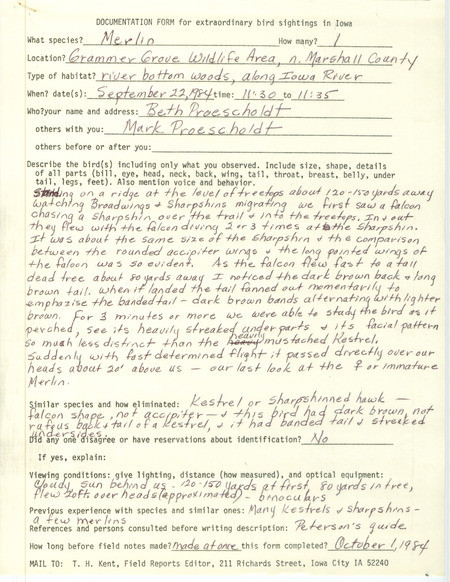 DOCUMENTATION FORM for extraordinary bird sightings in Iowa
What species? Merlin How many? 1
Location? Grammer Grove Wildlife Area, n. Marshall County
Type of habitat? river bottom woods, along Iowa River
When? date(s): September 22, 1984 time: 11:30 to 11:35
Who? your name and address: Beth Proescholdt
others with you: Mark Proescholdt
others before or after you:
Describe the bird(s) including only what you observed. Include size, shape, details
of all parts (bill, eye, head, neck, back, wing, tail, throat, breast, belly, under
tail, legs, feet). Also mention voice and behavior.
Standing on a ridge at the level of treetops about 120-150 yards away
watching Broadwings & Sharpshins migrating we first saw a falcon
chasing a Sharpshin over the trail & into the treetops. In & out
they flew with the falcon diving 2 or 3 times at the Sharpshin.
It was about the same size of the Sharpshin & the comparison
between the rounded accipiter wings & the long pointed wings of
the falcon was so evident. As the falcon flew fast to a tall
dead tree about 80 yards away I noticed the dark brown back & long
brown tail. When it landed the tail fanned out momentarily to
emphasize the banded tail - dark brown bands alternating with lighter
brown. For 3 minutes or more we were able to study the bird as it
perched, see its heavily streaked underparts & its facial pattern
so much less distinct than the heavily mustached Kestrel.
Suddenly with fast determined flight it passed directly over our
heads about 20' above us — our last look at the ♀ or immature
Merlin.
Similar species and how eliminated: Kestrel or Sharpshinned hawk —
falcon shape, not accipiter — & this bird had dark brown, not
rufous back & tail of a Kestrel, & it had banded tail & streaked
undersides.
Did any one disagree or have reservations about identification? No
If yes, explain:
Viewing conditions: give lighting, distance (how measured), and optical equipment:
Cloudy sun behind us - 120-150 yards at first, 80 yards in tree,
flew 20ft over heads (approximated) - binoculars
Previous experience with species and similar ones: Many Kestrels & Sharpshins -
a few merlins
References and persons consulted before writing description: Peterson's guide
How long before field notes made? made at once this form completed? October 1, 1984
MAIL TO: T. H. Kent, Field Reports Editor, 211 Richards Street, Iowa City IA 52240